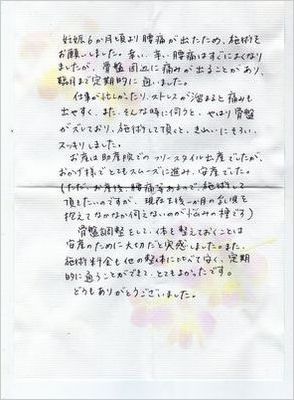 妊娠6か月頃より腰痛が出たため、施術を
お願いしました。幸い、辛い腰痛はすぐによくなり
ましたが、骨盤周辺に痛みが出ることがあり、
臨月まで定期的に通いました。
仕事が忙しかったり、ストレスが溜まると痛みも
出やすく、また、そんな時に伺うと、やはり骨盤
がズレており、施術して頂くと、きれいにもどり、
スッキリしました。
お産は助産院でのフリースタイル出産でしたが、
おかげ様でとてもスムーズに進み、安産でした。
(ただ、お産後、腰痛等あるので、施術して
頂きたいのですが、現在生後一か月の乳呑を
抱えてなかなか伺えないのが悩みの種です)
骨盤調整をして、体を整えておくことは
安産のために大切だと実感しました。また、
施術料金も他の整体に比べて安く、定期
的に通うことができて、とてもよかったです。
どうもありがとうございました。